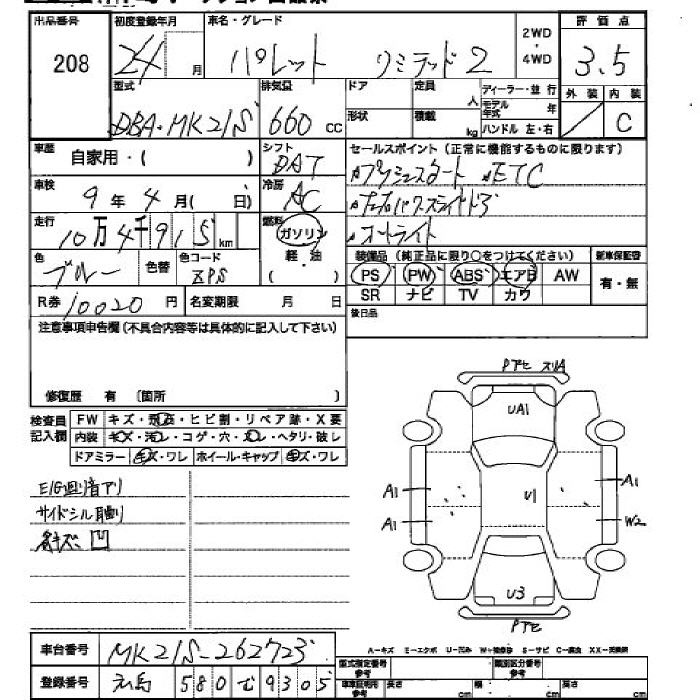 出品番号 208
初度登録年月 24 月
車名・グレード パレット リミテッド2
2WD・4WD
評価点 3.5
外装 内装 C
型式 DBA・MK21S
排気量 660 cc
ドア 形状
定員 人
積載 kg
ディーラー・並行
モデル年式 年
ハンドル 左・右
車歴 自家用・( )
シフト DAT
セールスポイント(正常に機能するものに限ります)
プッシュスタート ETC
オートライト
車検 9年4月( 日)
冷房 AC
走行 10万4千915km
燃料 ガソリン 軽・油 ( )
色 ブルー 色替
色コード ZPS
装備品(純正品に限り○をつけてください) 新車保証書
PS PW ABS エアB AW 有・無
SR ナビ TV カワ
R券 10020円 名変期限 月 日
後日品
注意事項申告欄(不具合内容等は具体的に記入して下さい)
修復歴 有 〔箇所 〕
検査員記入欄
FW キズ・飛石・ヒビ割・リペア跡・X要
内装 キズ・汚レ・コゲ・穴・スレ・ヘタリ・破レ
ドアミラー キズ・ワレ ホイール・キャップ キズ・ワレ
E/G廻り音アリ
サイドシル
凹
Pアセ スリA
UA1
A1 A1
U1
A1 W2
U3
Pアセ
A-キズ E-エクボ U-凹み W-補修跡 S-サビ C-腐食 XX-交換済
車台番号 MK21S-262723
登録番号 580 む 9305
型式指定番号 参考
類別区分番号 参考
車庫証明用 参考 長さ cm 幅 cm 高さ cm